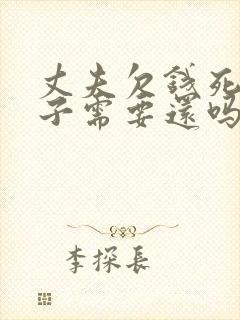 丈夫欠錢死
子需要還嗎
李探長